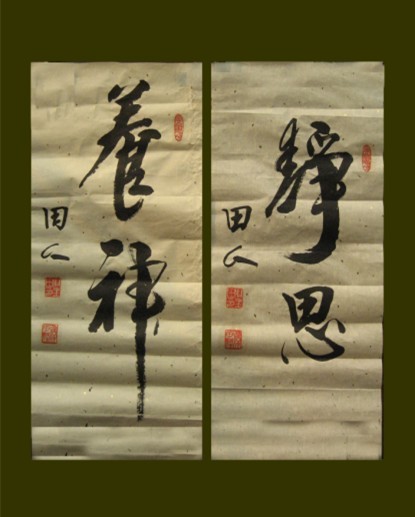 靜思
田人
養神
田人